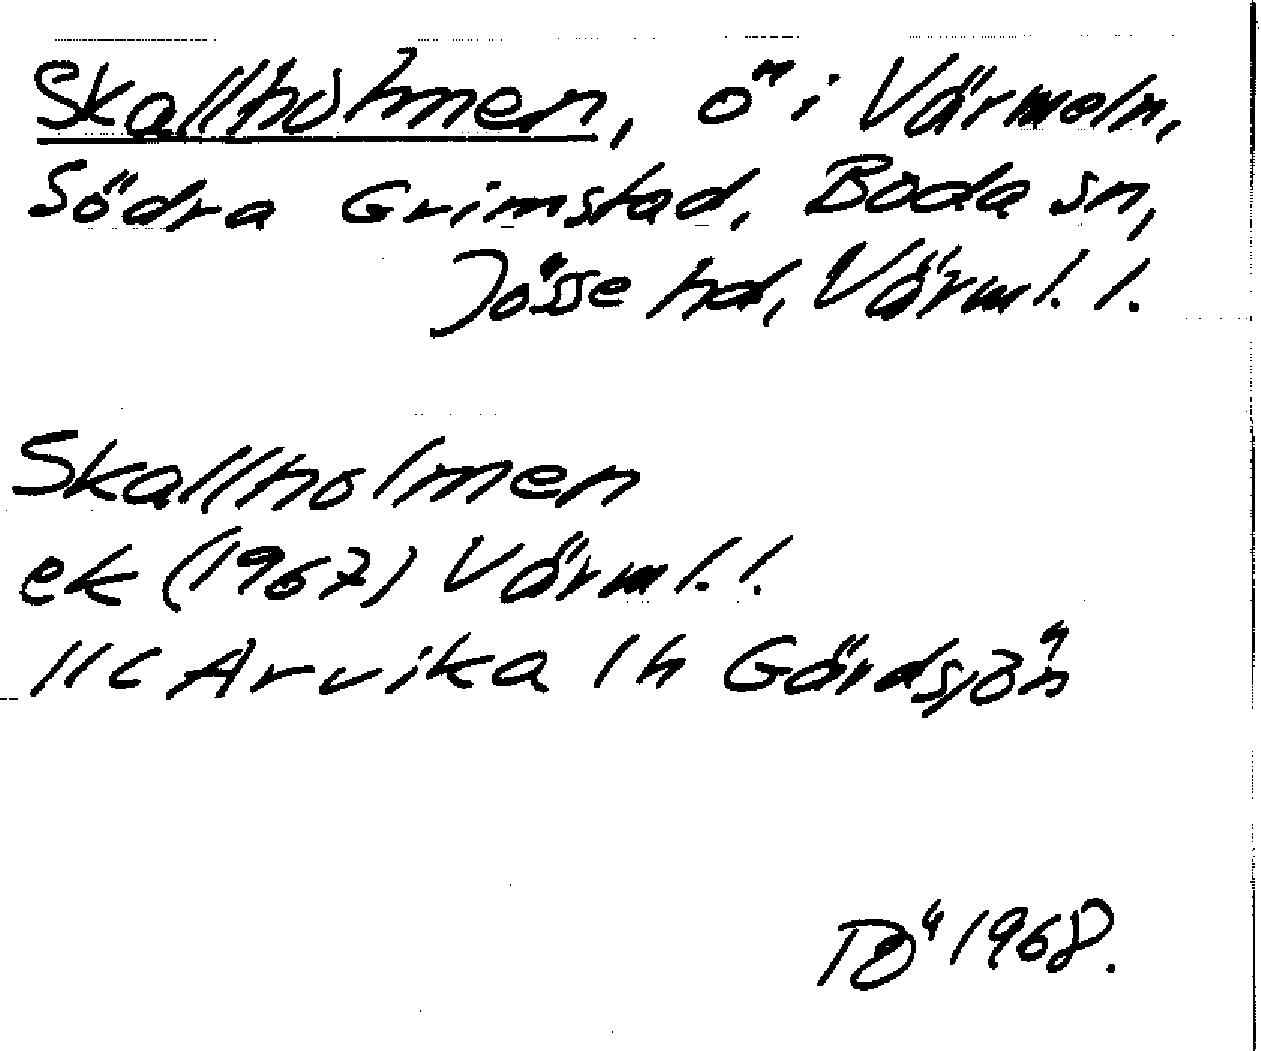 Skallholmen, ö i Värmeln,
Södra Grimstad, Boda sn,
Jösse hd, Värml. l.
Skallholmen
ek (1967) Värml. l.
11C Arvika 1h Gårdsjön
1968.